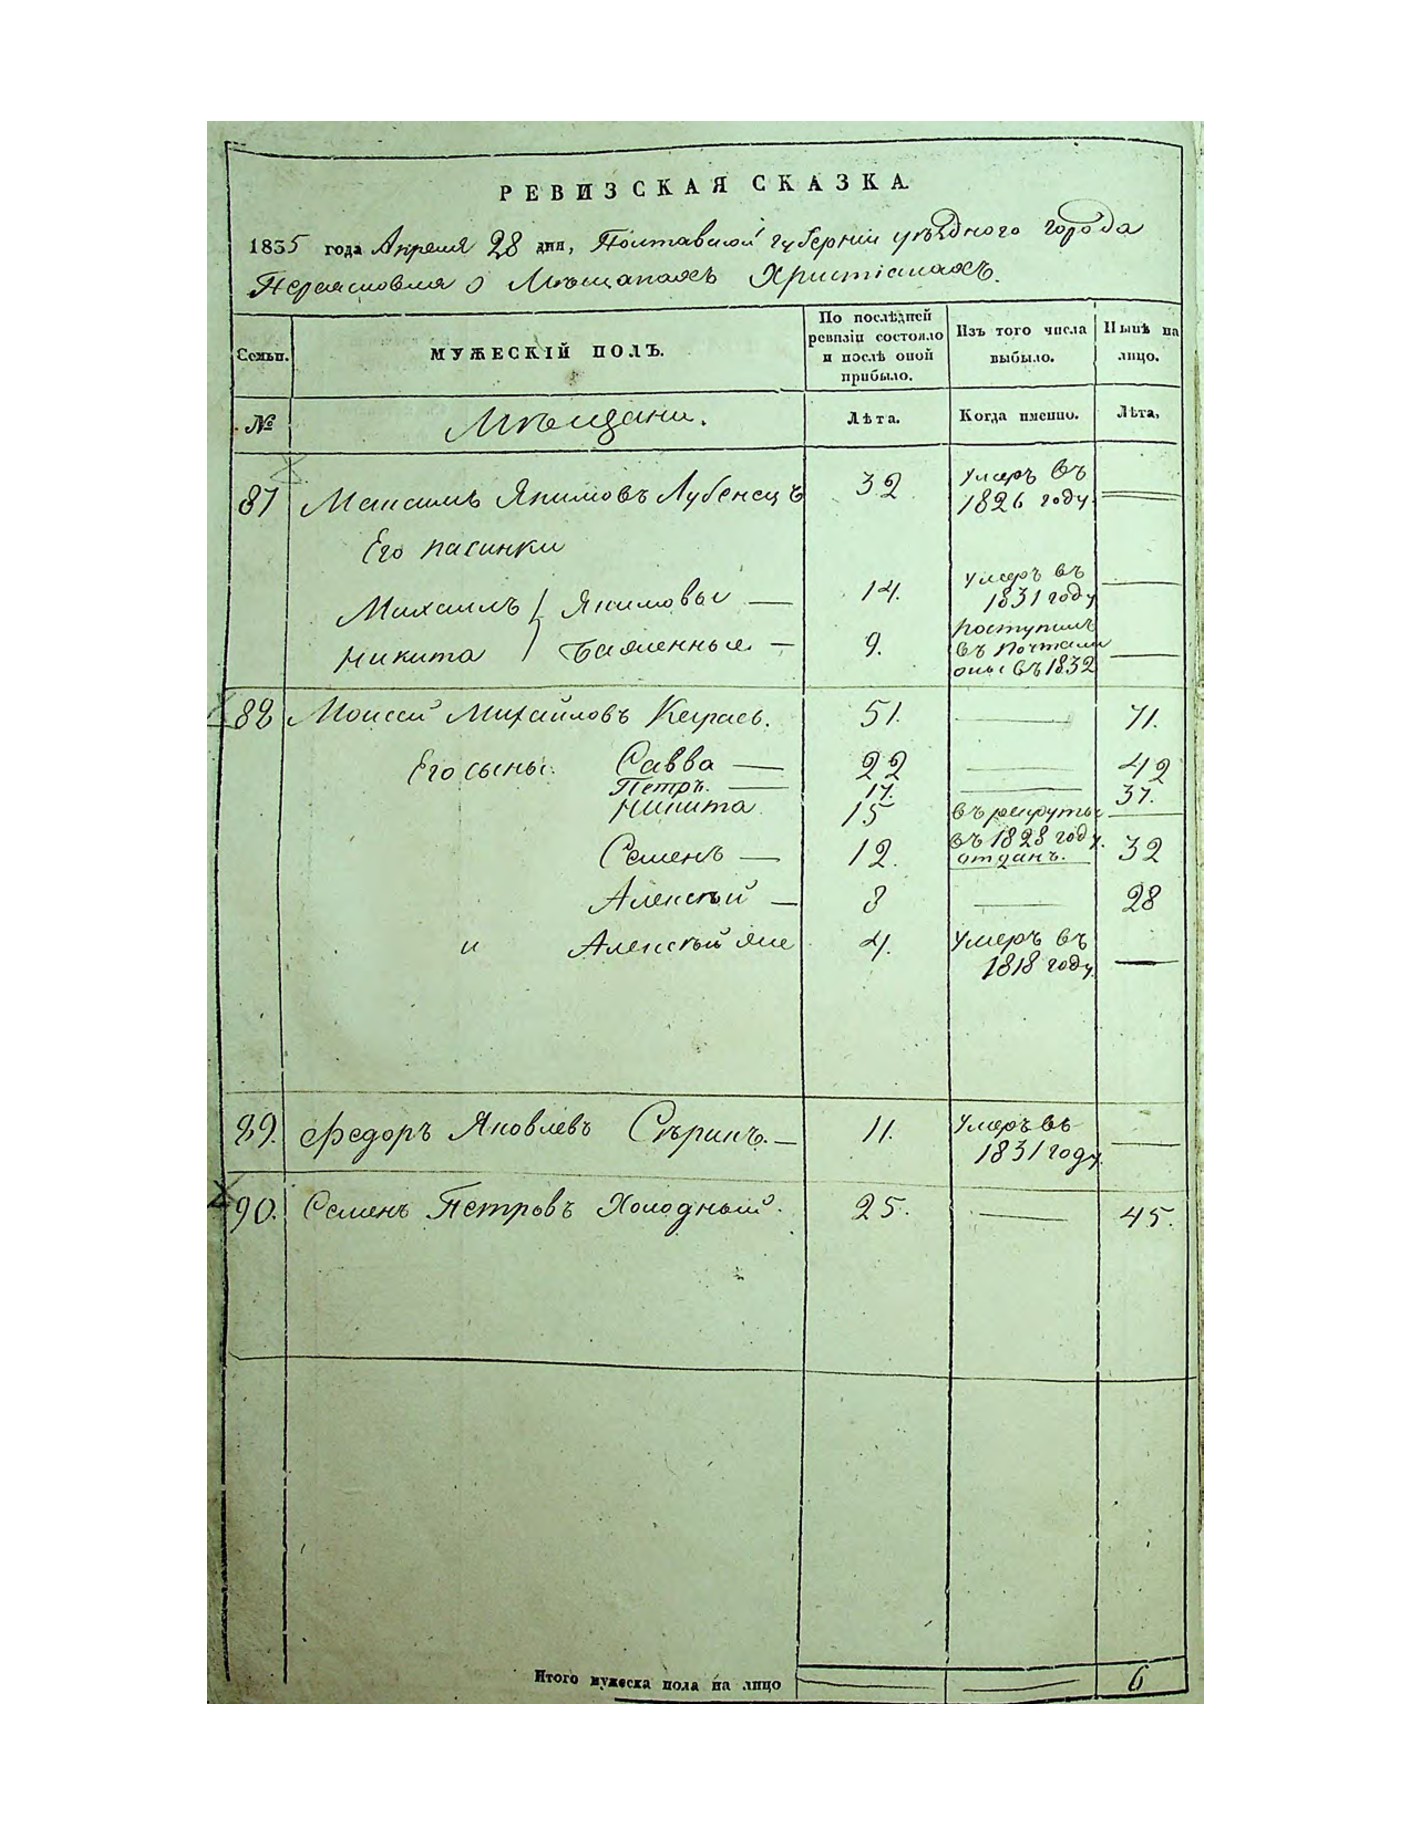 РЕВИЗСКАЯ СКАЗКА.
1835 года Апреля 28 дня, Полтавской губернии уѣзднаго города
Переяславля о Мѣщанахъ Христіанахъ.
Семьи.
МУЖЕСКІЙ ПОЛЪ.
По послѣдней ревизіи состояло и послѣ оной прибыло.
Изъ того числа выбыло.
Нынѣ на лицо.
№ Мѣщани. Лѣта. Когда именно. Лѣта.
87 Максимъ Якимовъ Лубенецъ 32 умеръ въ 1826 году.
Его пасинки
Михаилъ Якимовы 14. умеръ въ 1831 году
Никита 9. поступилъ въ почталіоны въ 1832
88 Моисей Михайловъ Карась. 51. 71.
Его сыны: Савва 22 42
Петръ. 17. 37.
Никита 15 въ рекруты въ 1828 году. отданъ.
Семенъ 12. 32
Алексѣй 8 28
и Алексѣй же 4. умеръ въ 1818 году.
89. Федоръ Яковлевъ Сѣринъ. 11. Умеръ въ 1831 году.
90. Семенъ Петровъ Холодный. 25. 45.
Итого мужеска пола на лицо 6